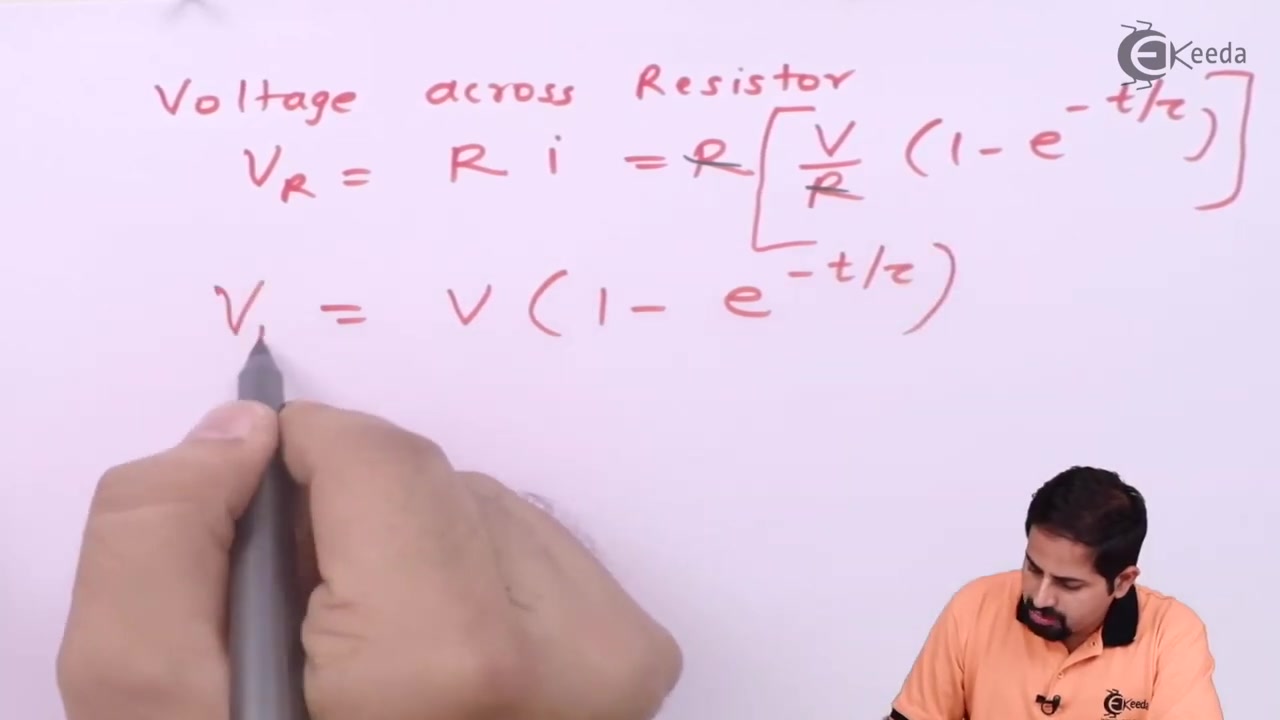 EKeeda
Voltage across Resistor
V_R = R i = R [ V/R (1 - e^{-t/τ}) ]
V = V (1 - e^{-t/τ})
EKeeda